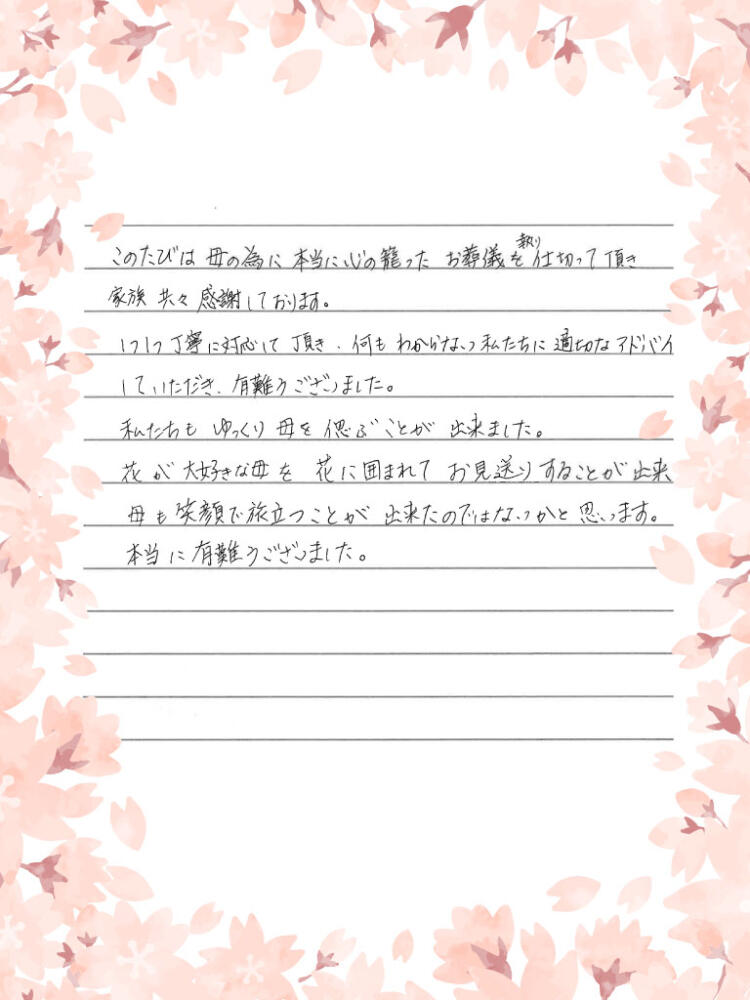 このたびは 母の為に 本当に心の籠った お葬儀を執り仕切って頂き
家族 共々 感謝しております。
いつも丁寧に対応して 頂き、何も わからない私たちに 適切なアドバイ
していただき、有難うございました。
私たちも ゆっくり 母を 偲ぶことが 出来ました。
花が 大好きな母を 花に囲まれて お見送りすることが出来
母も笑顔で旅立つことが 出来たのではないかと思います。
本当に有難うございました。